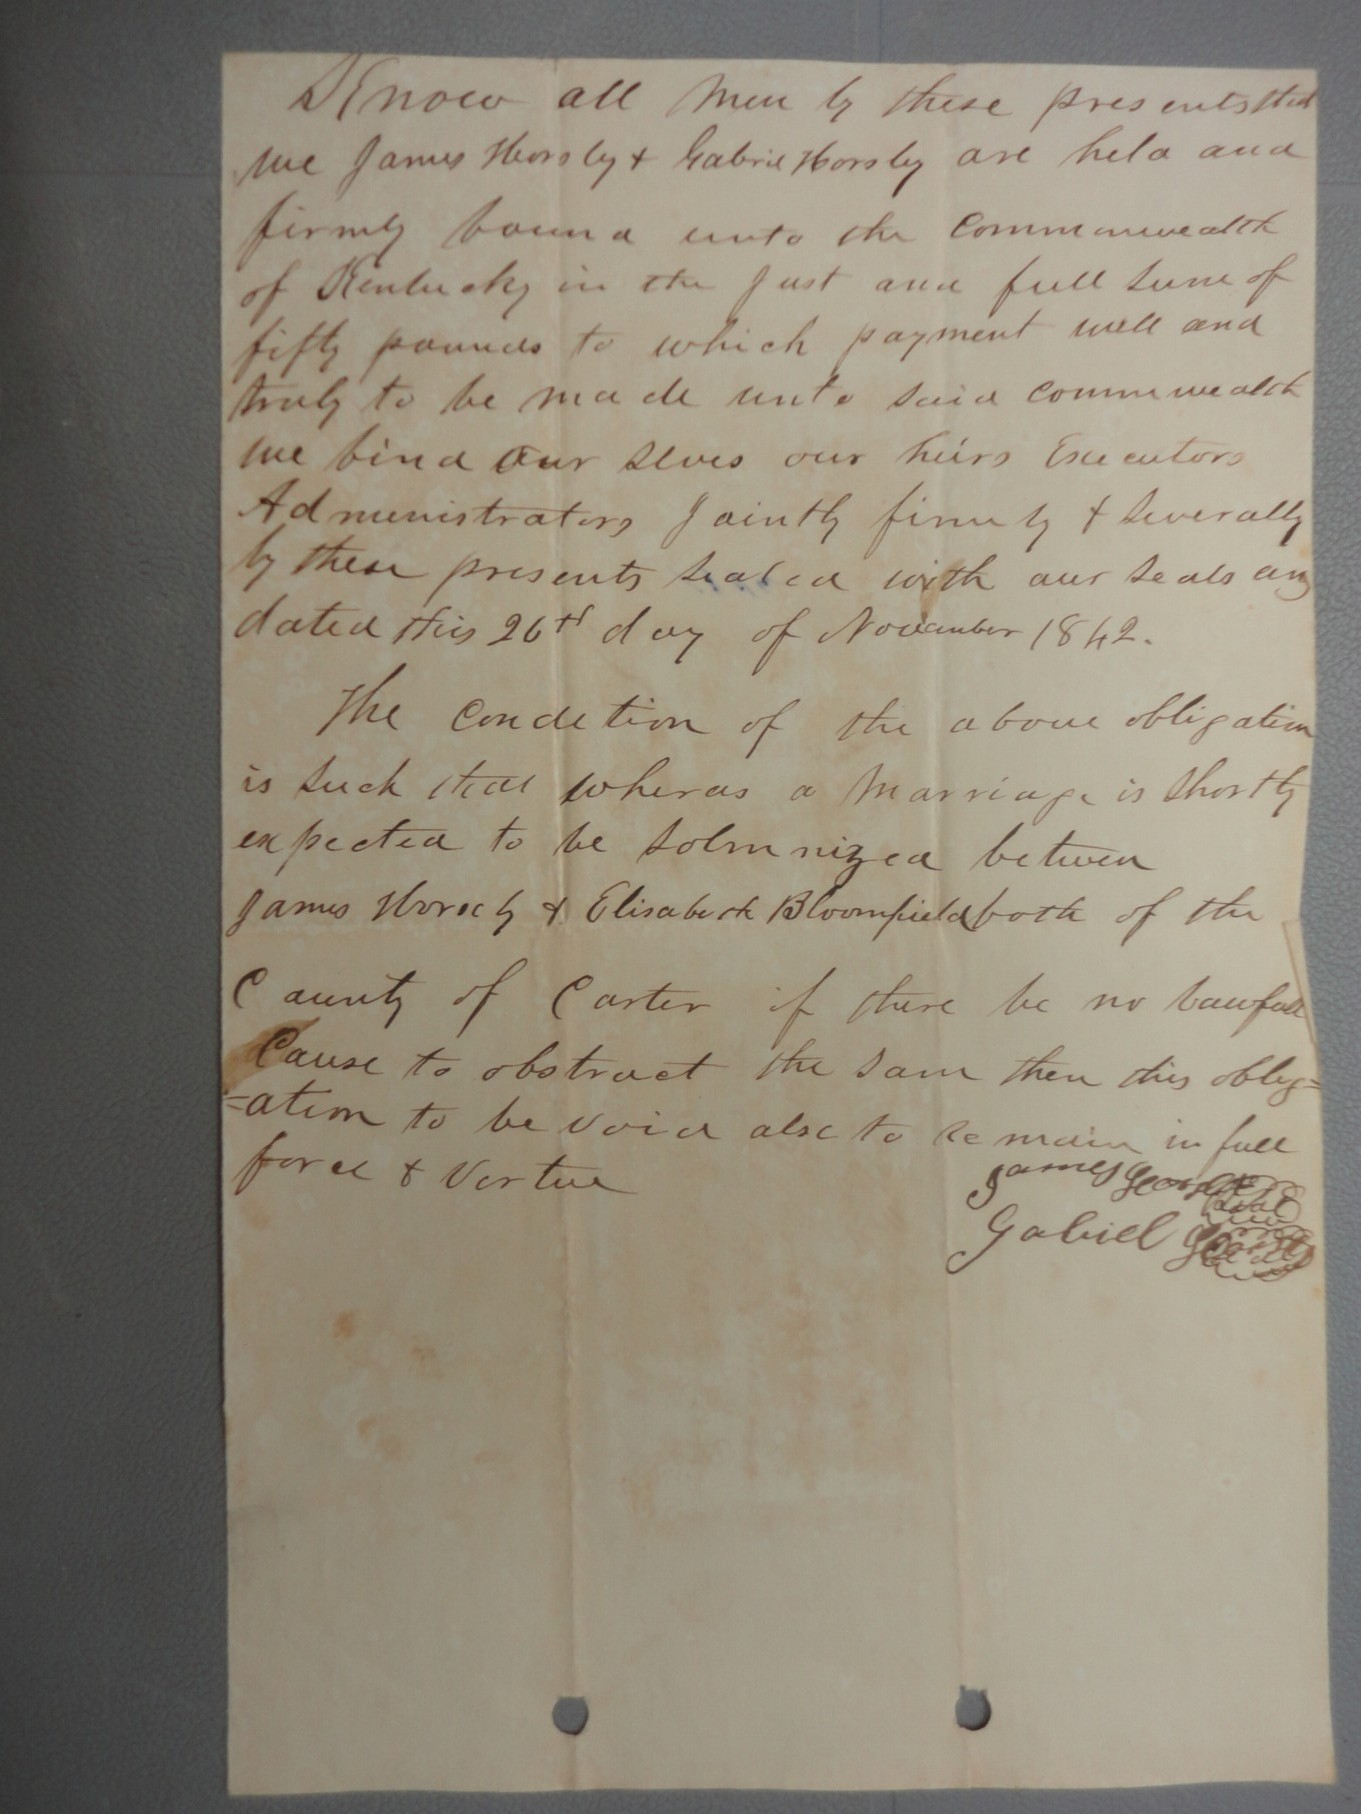 Know all Men by these presents that
we James Horsley & Gabriel Horsley are held and
firmly bound unto the Commonwealth
of Kentucky in the Just and full sum of
fifty pounds to which payment well and
truly to be made unto said commwealth
we bind our selves our heirs Executors
Administrators Jointly firmly & severally
by these presents sealed with our seals and
dated this 26th day of November 1842.
The condetion of the above obligation
is such that wheras a Marriage is shortly
expected to be Solmnized between
James Horsely & Elisabeth Bloomfield both of the
County of Carter if there be no lawfull
Cause to obstruct the same then this oblig=
=ation to be void else to remain in full
force & Vertue
James Horsley Seal
Gabriel Horsley Seal